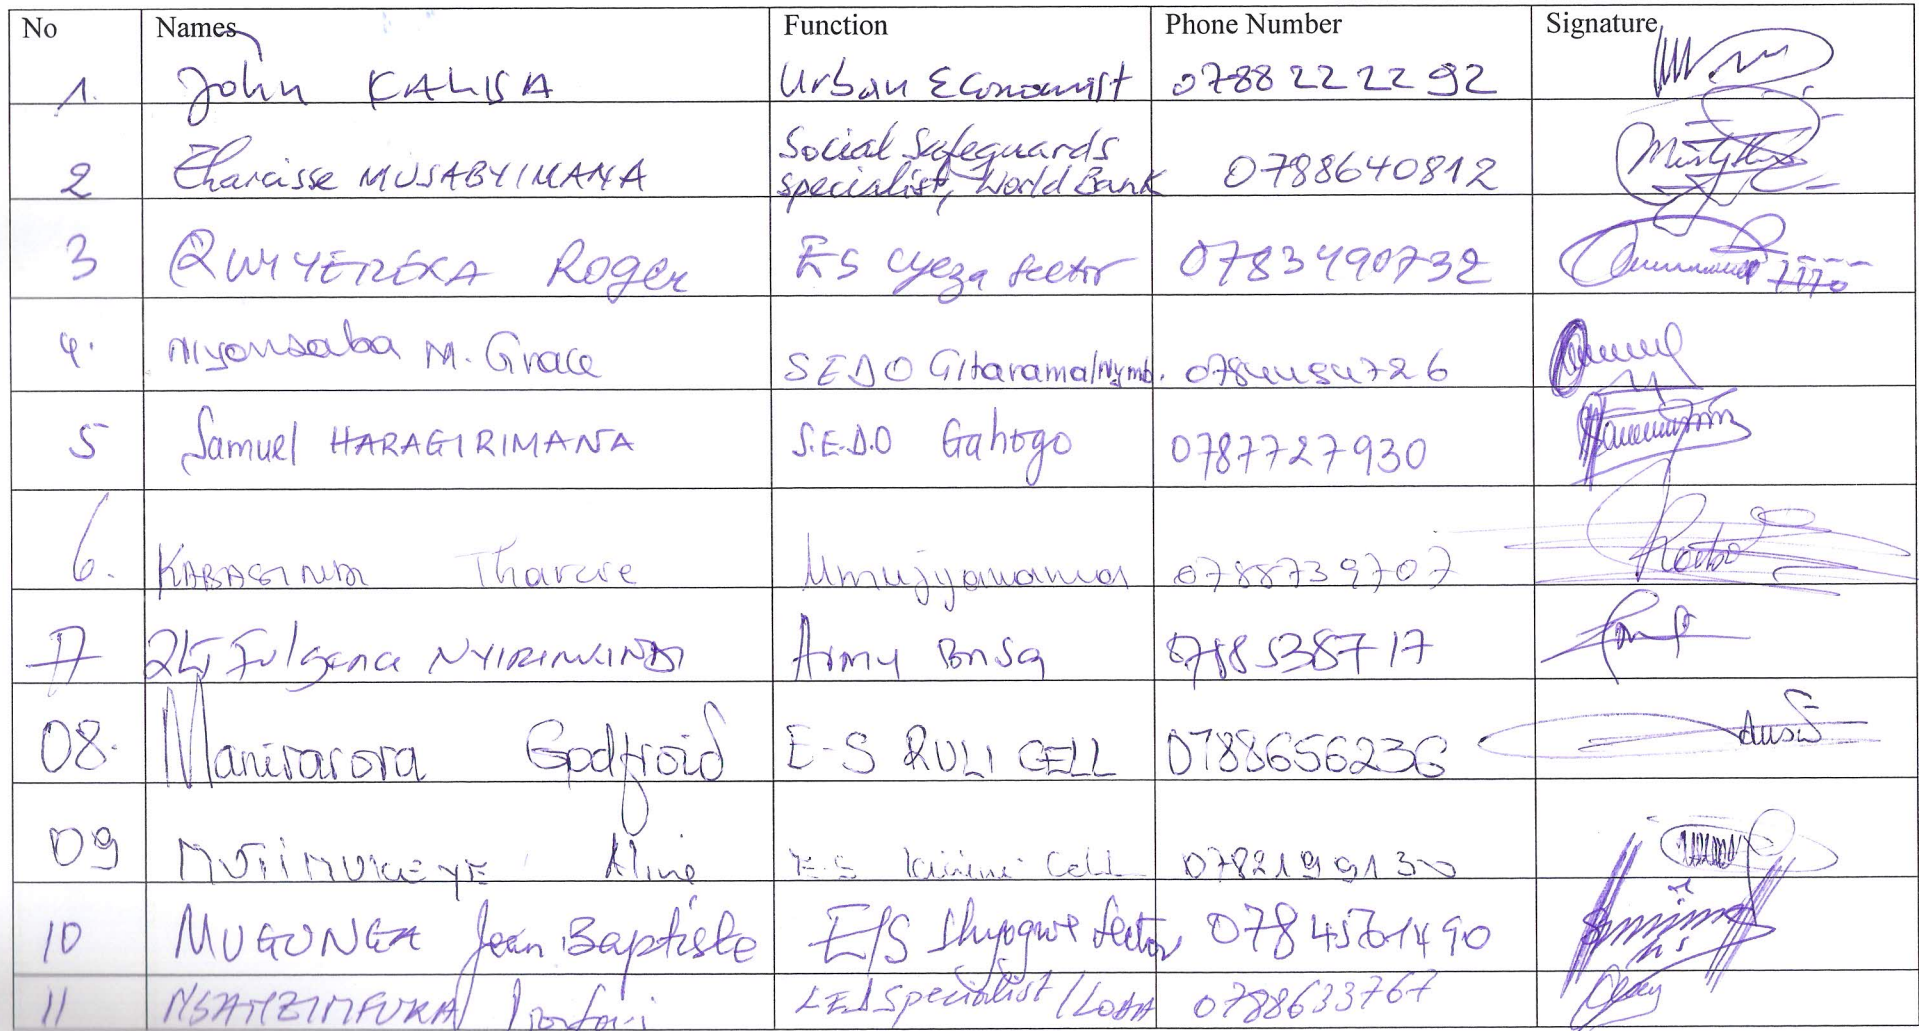 No Names Function Phone Number Signature
1. John KALISA Urban Economist 0788 22 22 92
2 Tharcisse MUSABYIMANA Social Safeguards
specialist, World Bank 0788640812
3 RWIYEREKA Roger ES Cyeza Sector 0783490732
4. Niyonsaba M. Grace SEDO Gitarama/Nymb.
5 Samuel HARAGIRIMANA S.E.D.O Gahogo 0787727930
6. KABASINDI Tharcise Umujyanama 0788739707
7 2LT Fulgence Army 0788538717
08. Manirarora Godfroid E-S RULI CELL 0788656236
09 Aline E-S Cell 0782199130
10 MUGUNGA Jean Baptiste E/S Shyogwe Sector
11 NSANZIMFURA LED Specialist / LODA 0788633767